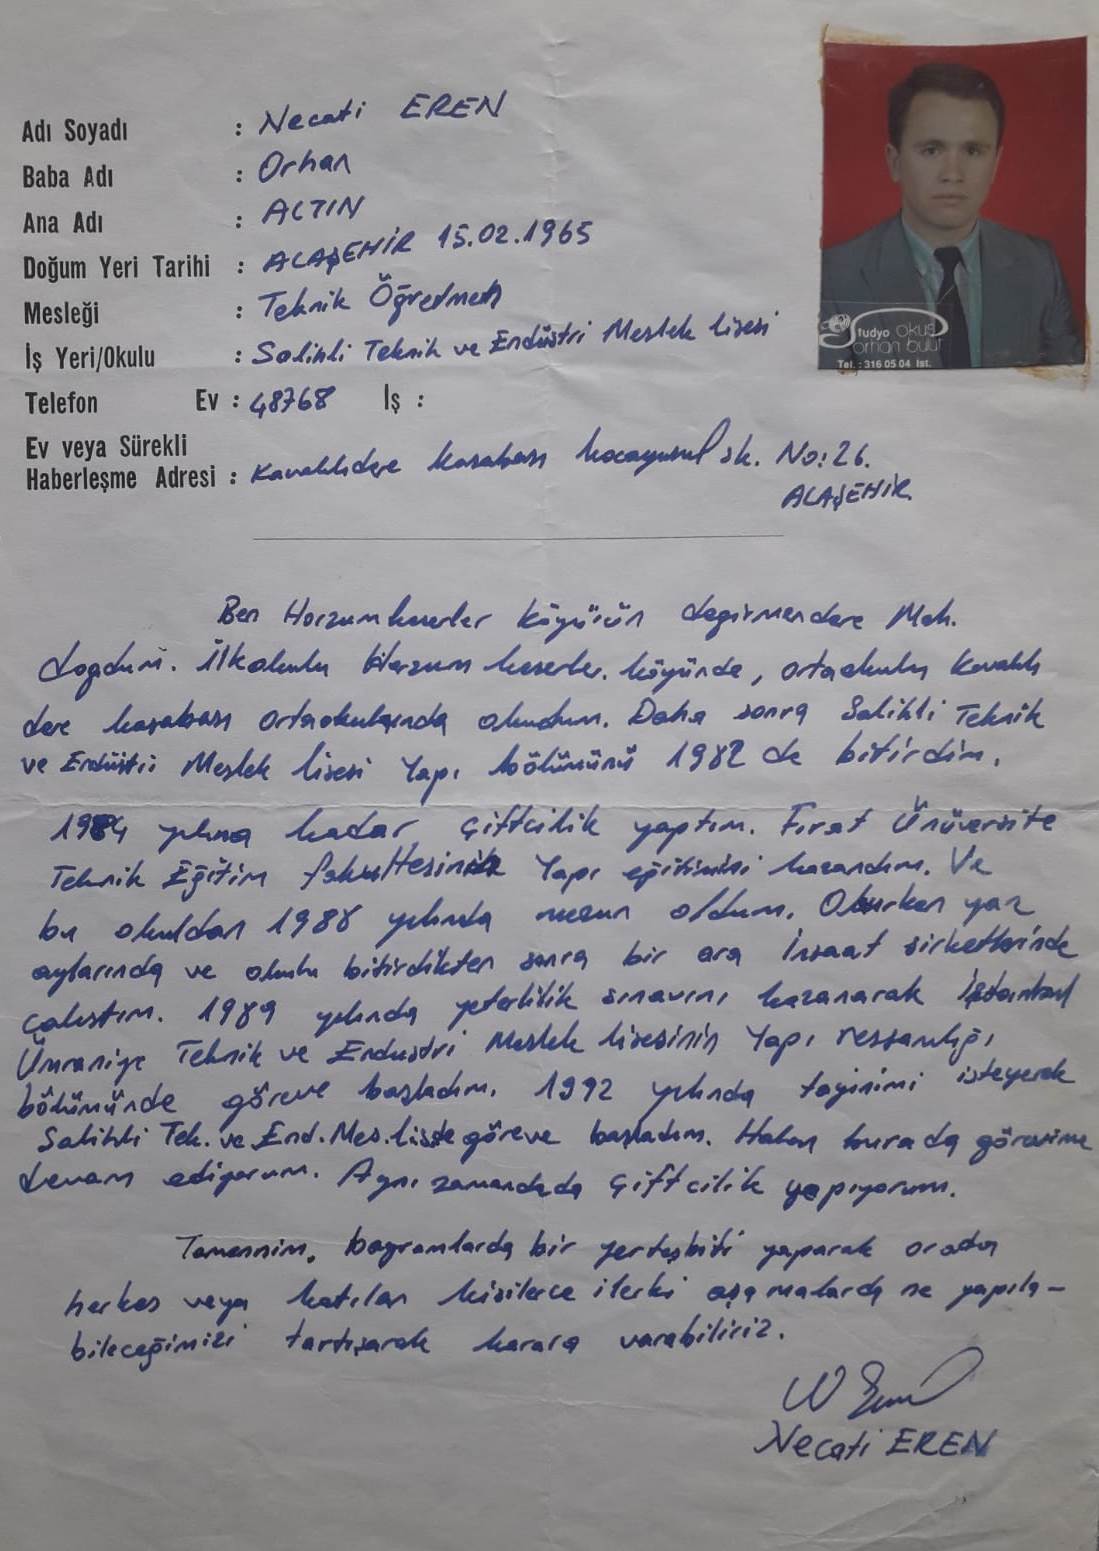 Adı Soyadı : Necati EREN
Baba Adı : Orhan
Ana Adı : ALTIN
Doğum Yeri Tarihi : ALAŞEHİR 15.02.1965
Mesleği : Teknik Öğretmen
İş Yeri/Okulu : Salihli Teknik ve Endüstri Meslek lisesi
Telefon Ev : 48768 İş :
Ev veya Sürekli
Haberleşme Adresi : Kavaklıdere kasabası Kocayusuf sk. No:26.
ALAŞEHİR
Studyo okuş
orhan bulut
Tel.: 316 05 04 Ist.
Ben Horzumkeserler köyünün degirmendere Mah.
dogdum. İlkokulu Horzum keserler. köyünde, ortaokulu Kavaklı
dere kasabası ortaokulunda okudum. Daha sonra Salihli Teknik
ve Endüstri Meslek lisesi Yapı bölümünü 1982 de bitirdim.
1984 yılına kadar çiftcilik yaptım. Fırat Ünüversite
Teknik Eğitim fakultesinin Yapı eğitimini kazandım. Ve
bu okuldan 1988 yılında mezun oldum. Okurken yaz
aylarında ve okulu bitirdikten sonra bir ara İnsaat sirketlerinde
çalıstım. 1989 yılında yeterlilik sınavını kazanarak İstanbul
Ümraniye Teknik ve Endustri Meslek lisesinin Yapı ressamlığı
bölümünde göreve başladım. 1992 yılında tayinimi isteyerek
Salihli Tek. ve End. Mes. lisede göreve başladım. Halen burada görevime
devam ediyorum. Aynı zamandada çiftcilik yapıyorum.
Temennim, bayramlarda bir yertesbiti yaparak orada
herkes veya katılan kisilerce ilerki aşamalarda ne yapıla-
bileceğimizi tartışarak karara varabiliriz.
Necati EREN